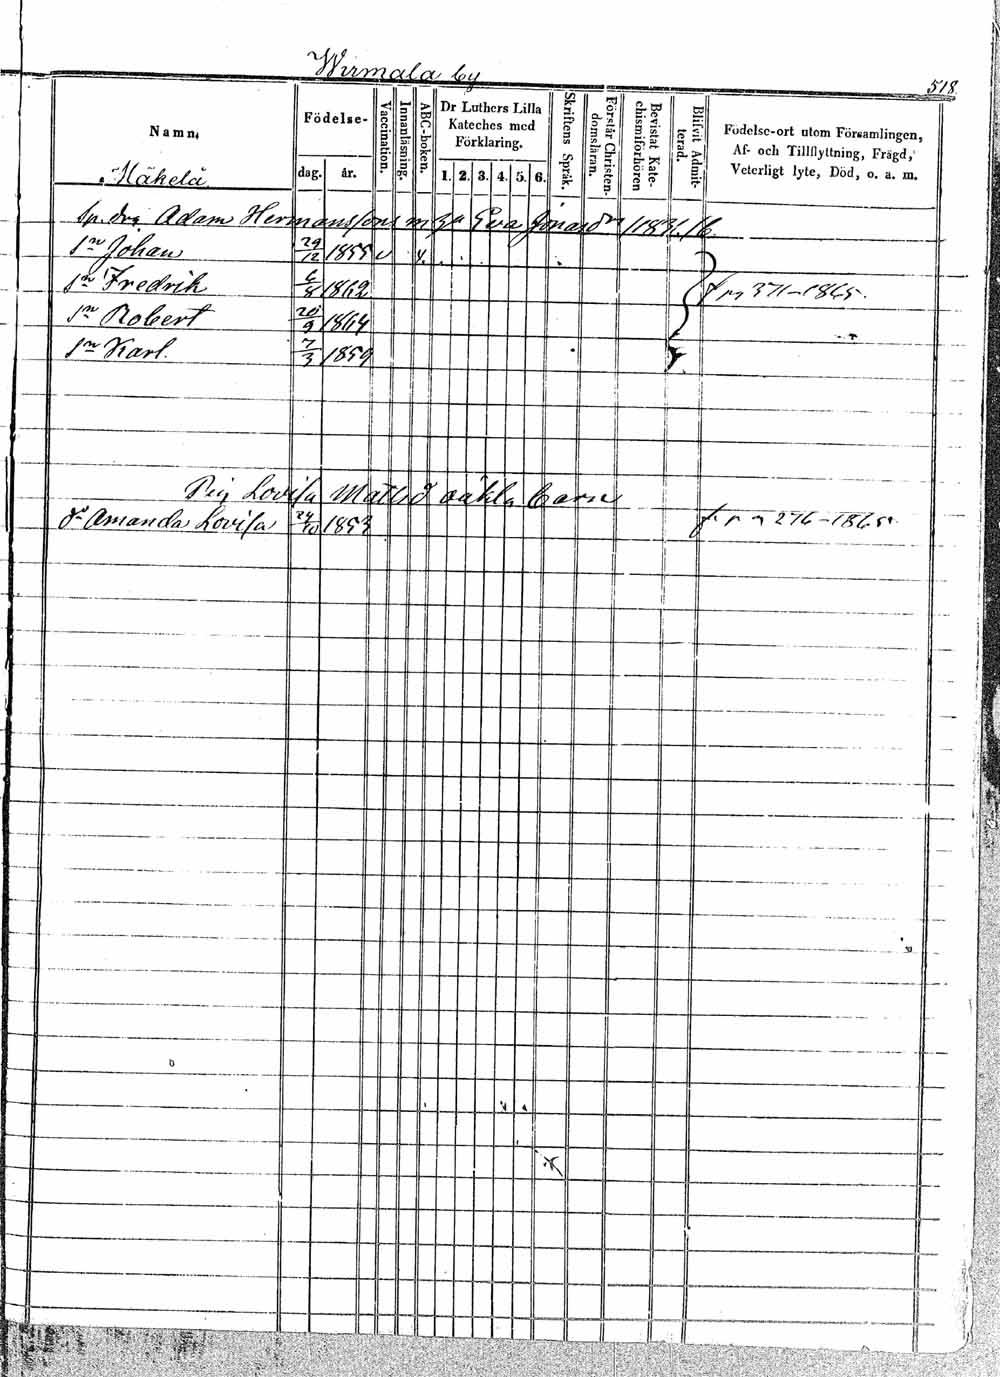 Wirmala by
518
Namn.
Födelse-
dag. år.
Vaccination.
Innanläsning.
ABC-boken.
Dr Luthers Lilla
Kateches med
Förklaring.
1. 2. 3. 4. 5. 6.
Skriftens Språk.
Förstår Christen-
domsläran.
Bevistat Kate-
chismiförhören
Blifvit Admit-
terad.
Födelse-ort utom Församlingen,
Af- och Tillflyttning, Frägd,
Veterligt lyte, Död, o. a. m.
Häkelä
Adam Hermanssons m Eva Jonasdr
sn Johan 29/12 1855 v
sn Fredrik 6/8 1862 371-1865.
sn Robert 20/9 1864
sn Karl. 7/3 1859
Pig Lovisa Matsd oäkta barn
dr Amanda Lovisa 24/10 1853 276-1865.